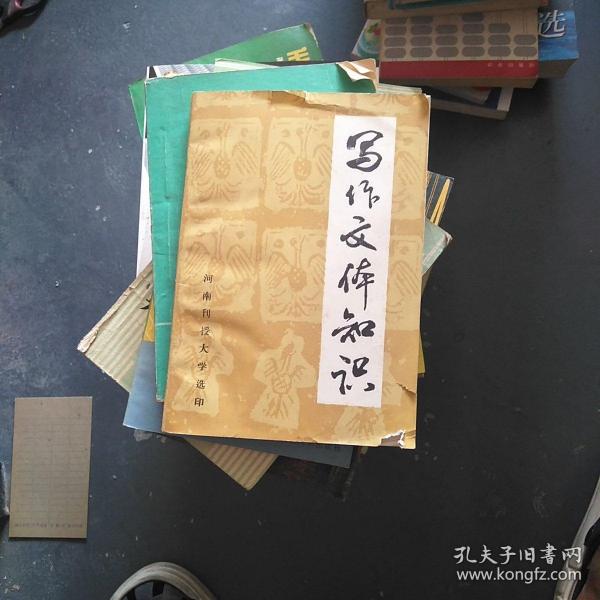 写作文体知识
河南刊授大学选印
选
孔夫子旧书网
www.kongfz.com